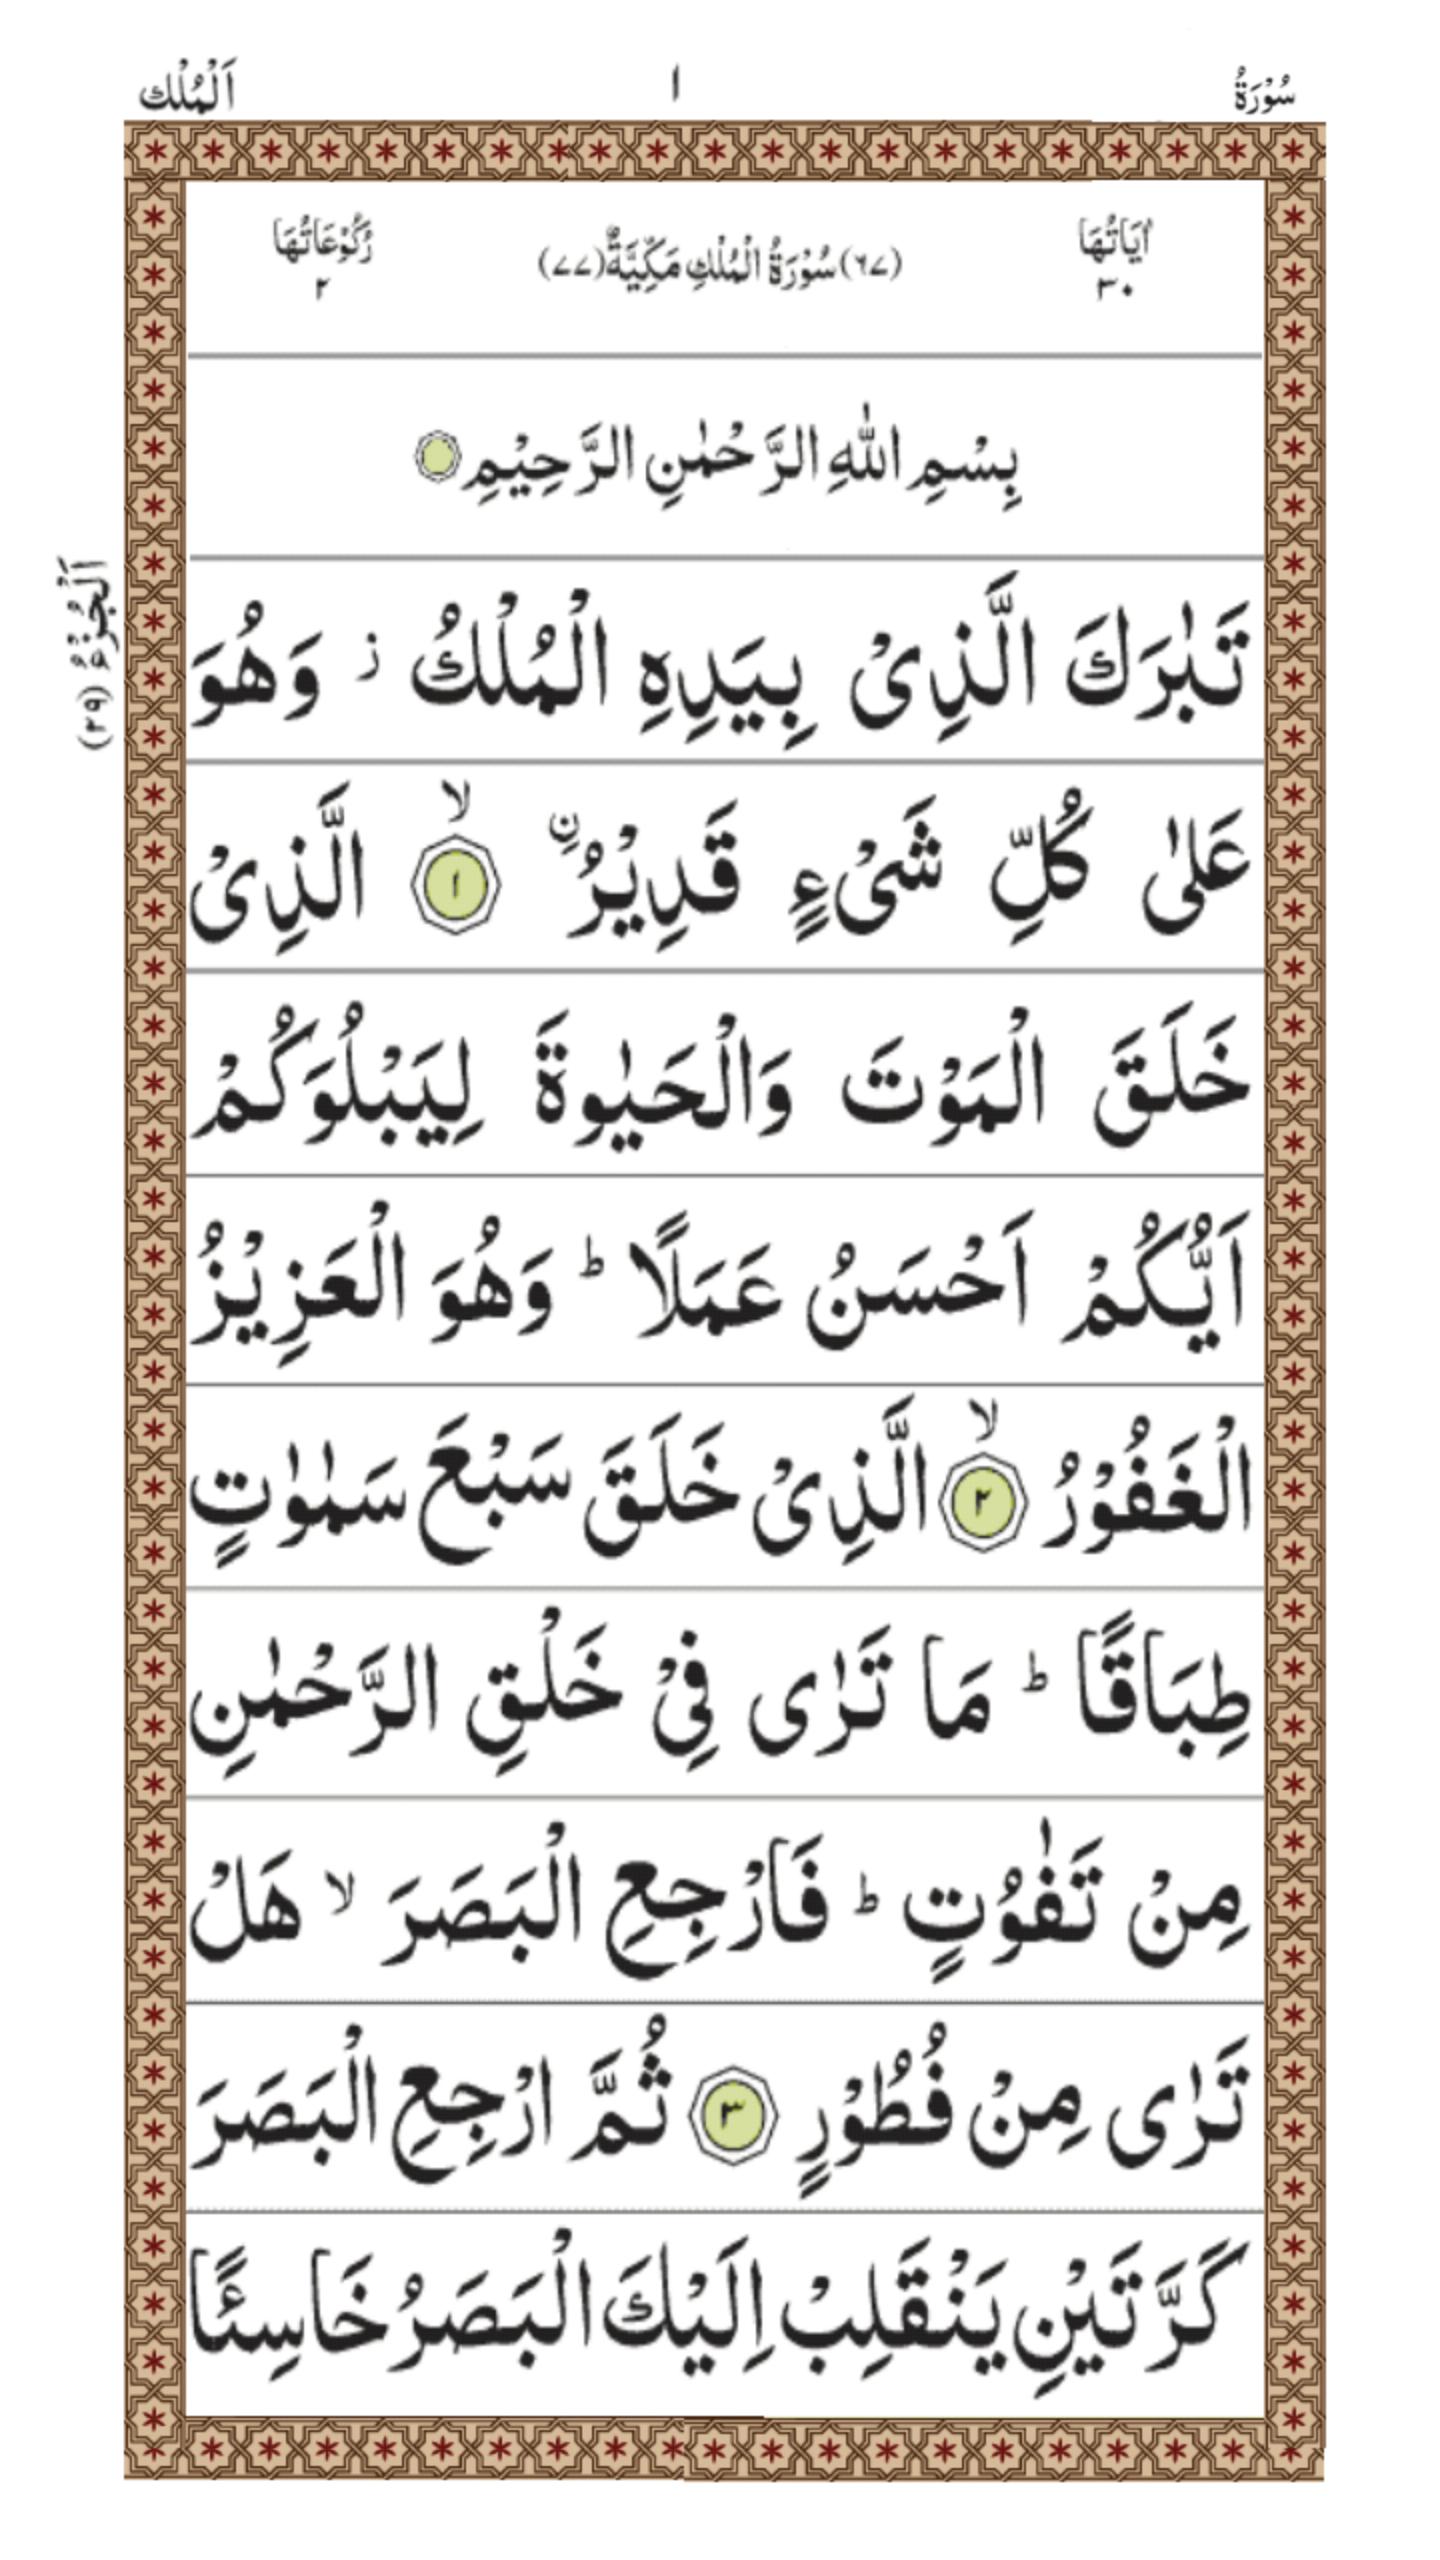 سُوْرَةُ ١ اَلْمُلْك
اٰيَاتُهَا ٣٠ (٦٧) سُوْرَةُ الْمُلْكِ مَكِّيَّةٌ (٧٧) رُكُوْعَاتُهَا ٢
بِسْمِ اللّٰهِ الرَّحْمٰنِ الرَّحِيْمِ
اَلْجُزْءُ (٢٩)
تَبٰرَكَ الَّذِىْ بِيَدِهِ الْمُلْكُ ز وَهُوَ
عَلٰى كُلِّ شَىْءٍ قَدِيْرُ ۨ ۙ ١ الَّذِىْ
خَلَقَ الْمَوْتَ وَالْحَيٰوةَ لِيَبْلُوَكُمْ
اَيُّكُمْ اَحْسَنُ عَمَلًا ؕ وَهُوَ الْعَزِيْزُ
الْغَفُوْرُ ۙ ٢ الَّذِىْ خَلَقَ سَبْعَ سَمٰوٰتٍ
طِبَاقًا ؕ مَا تَرٰى فِىْ خَلْقِ الرَّحْمٰنِ
مِنْ تَفٰوُتٍ ؕ فَارْجِعِ الْبَصَرَ ۙ هَلْ
تَرٰى مِنْ فُطُوْرٍ ٣ ثُمَّ ارْجِعِ الْبَصَرَ
كَرَّتَيْنِ يَنْقَلِبْ اِلَيْكَ الْبَصَرُ خَاسِئًا